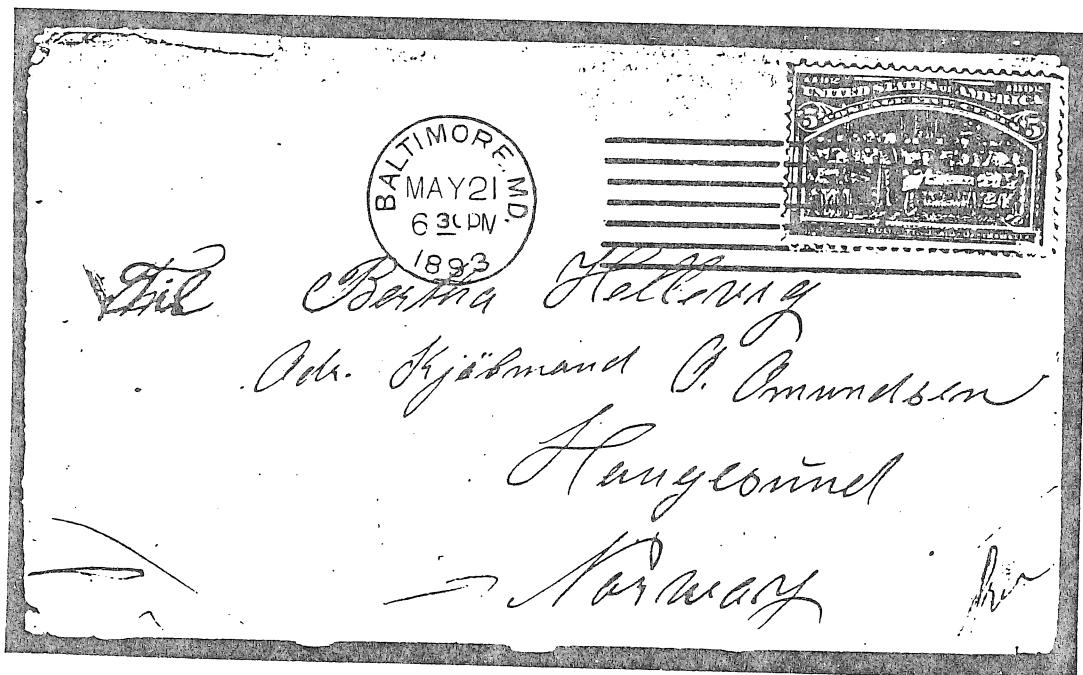 1492 UNITED STATES OF AMERICA 1892
5 5
BALTIMORE, MD.
MAY 21
6 30 PM
1893
Til Bertha Hellevig
Adr. Kjöbmand O. Omundsen
Haugesund
Norway